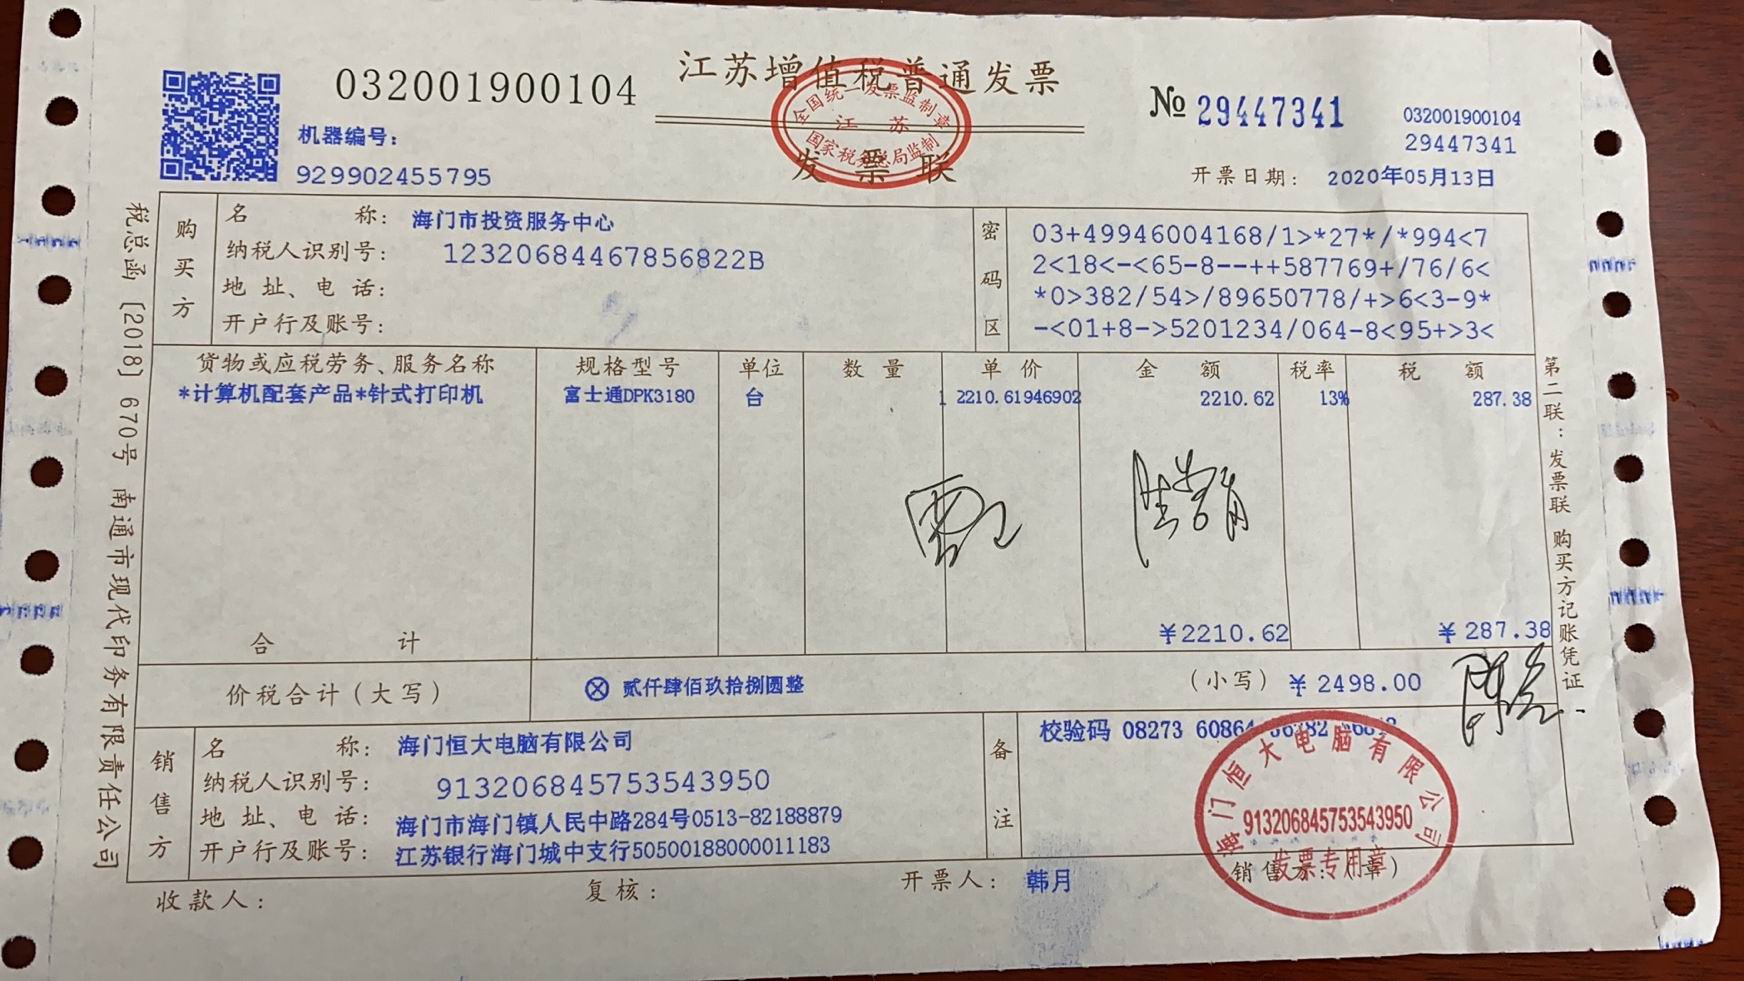 032001900104
江苏增值税普通发票
全国统一发票监制章
江 苏
国家税务总局监制
发 票 联
№ 29447341
032001900104
29447341
机器编号:
929902455795
开票日期: 2020年05月13日
税总函〔2018〕670号 南通市现代印务有限责任公司
购买方
名 称: 海门市投资服务中心
纳税人识别号: 12320684467856822B
地 址、电 话:
开户行及账号:
密码区
03+49946004168/1>*27*/*994<7
2<18<-<65-8--++587769+/76/6<
*0>382/54>/89650778/+>6<3-9*
-<01+8->5201234/064-8<95+>3<
货物或应税劳务、服务名称 规格型号 单位 数 量 单 价 金 额 税率 税 额
*计算机配套产品*针式打印机 富士通DPK3180 台 1 2210.61946902 2210.62 13% 287.38
合 计 ¥2210.62 ¥287.38
价税合计(大写) ⊗ 贰仟肆佰玖拾捌圆整 (小写) ¥2498.00
第二联:发票联 购买方记账凭证
销售方
名 称: 海门恒大电脑有限公司
纳税人识别号: 913206845753543950
地 址、电 话: 海门市海门镇人民中路284号0513-82188879
开户行及账号: 江苏银行海门城中支行50500188000011183
备注
校验码 08273 60864
海门恒大电脑有限公司
913206845753543950
发票专用章
收款人:
复核:
开票人: 韩月
销售方:(章)